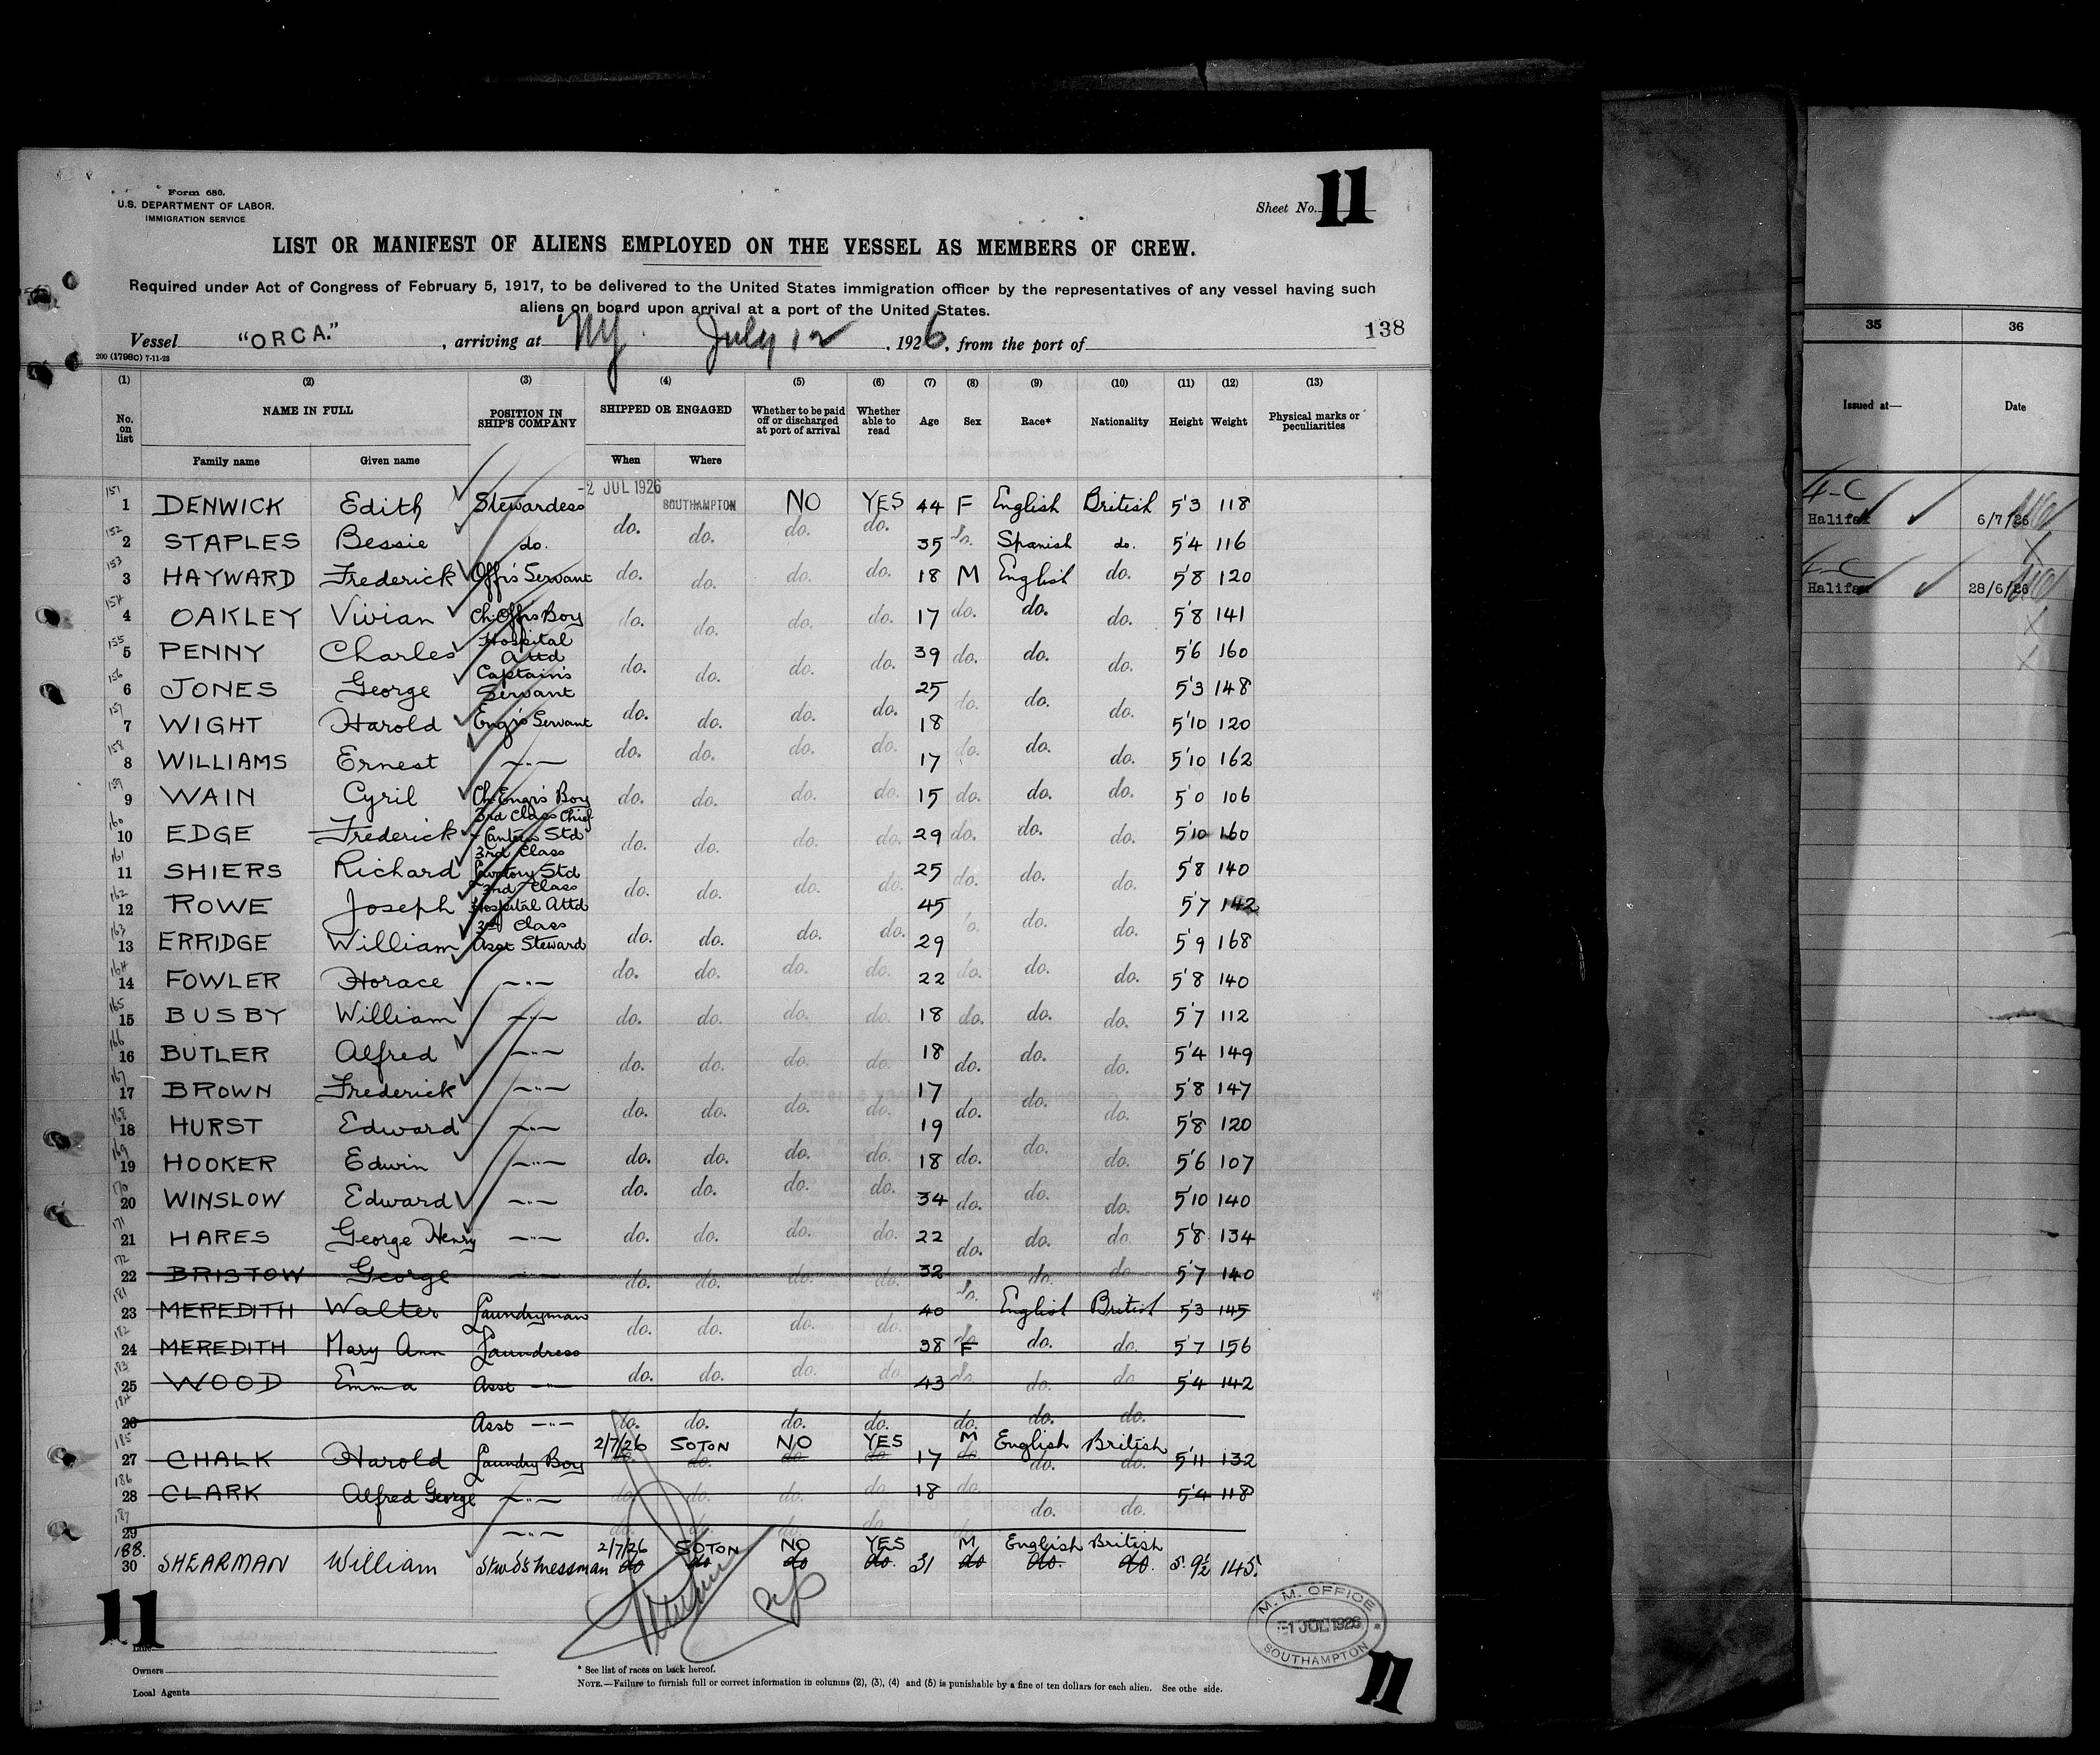 Form 680.
U.S. DEPARTMENT OF LABOR.
IMMIGRATION SERVICE
Sheet No. 11
LIST OR MANIFEST OF ALIENS EMPLOYED ON THE VESSEL AS MEMBERS OF CREW.
Required under Act of Congress of February 5, 1917, to be delivered to the United States immigration officer by the representatives of any vessel having such
aliens on board upon arrival at a port of the United States.
Vessel "ORCA." , arriving at NY July 12 , 1926, from the port of 138
200 (1798C) 7-11-23
(1) (2) (3) (4) (5) (6) (7) (8) (9) (10) (11) (12) (13)
No. on list NAME IN FULL POSITION IN SHIP'S COMPANY SHIPPED OR ENGAGED Whether to be paid off or discharged at port of arrival Whether able to read Age Sex Race* Nationality Height Weight Physical marks or peculiarities
Family name Given name When Where
151 1 DENWICK Edith Stewardess -2 JUL 1926 SOUTHAMPTON NO YES 44 F English British 5'3 118
152 2 STAPLES Bessie do. do. do. do. do. 35 do. Spanish do. 5'4 116
153 3 HAYWARD Frederick Offr's Servant do. do. do. do. 18 M English do. 5'8 120
154 4 OAKLEY Vivian Ch. Offr's Boy do. do. do. do. 17 do. do. do. 5'8 141
155 5 PENNY Charles Hospital Attd do. do. do. do. 39 do. do. do. 5'6 160
156 6 JONES George Captain's Servant do. do. do. do. 25 do. do. do. 5'3 148
157 7 WIGHT Harold Engr's Servant do. do. do. do. 18 5'10 120
158 8 WILLIAMS Ernest —"— do. do. do. do. 17 do. do. do. 5'10 162
159 9 WAIN Cyril Ch. Engr's Boy do. do. do. do. 15 do. do. do. 5'0 106
160 10 EDGE Frederick 3rd Class Chief Canteen Std do. do. do. do. 29 do. do. do. 5'10 160
161 11 SHIERS Richard 3rd Class Lavatory Std do. do. do. do. 25 do. do. do. 5'8 140
162 12 ROWE Joseph 3rd Class Hospital Attd do. do. do. do. 45 do. do. do. 5'7 142
163 13 ERRIDGE William 3rd Class Asst Steward do. do. do. do. 29 5'9 168
164 14 FOWLER Horace —"— do. do. do. do. 22 do. do. do. 5'8 140
165 15 BUSBY William —"— do. do. do. do. 18 do. do. do. 5'7 112
166 16 BUTLER Alfred —"— do. do. do. do. 18 do. do. do. 5'4 149
167 17 BROWN Frederick —"— 17 do. 5'8 147
168 18 HURST Edward —"— do. do. do. do. 19 do. do. do. 5'8 120
169 19 HOOKER Edwin —"— do. do. do. do. 18 do. do. do. 5'6 107
170 20 WINSLOW Edward —"— do. do. do. do. 34 do. do. do. 5'10 140
171 21 HARES George Henry —"— do. do. do. do. 22 do. do. do. 5'8 134
172 22 BRISTOW George —"— do. do. do. do. 32 do. do. do 5'7 140
181 23 MEREDITH Walter Laundryman 40 English British 5'3 145
182 24 MEREDITH Mary Ann Laundress do. do. do. do. 38 do. F do. do. 5'7 156
183 25 WOOD Emma Asst —"— do. do. do. do 43 do. do. do 5'4 142
184 26 Asst —"— do. do. do. do. do. do. do.
185 27 CHALK Harold Laundry Boy 2/7/26 SOTON NO YES 17 M English British 5'11 132
do. do. do do do do. do.
186 28 CLARK Alfred George —"— do. do. do. do 18 do. do. do. 5'4 118
187 29 —"— do. do. do. do.
188. 30 SHEARMAN William Stwd's Messman 2/7/26 SOTON NO YES 31 M English British 5' 9½ 145
do do do do. do do. do.
11
Line
Owners
Local Agents
* See list of races on back hereof.
NOTE.—Failure to furnish full or correct information in columns (2), (3), (4) and (5) is punishable by a fine of ten dollars for each alien. See othe side.
M. M. OFFICE
-1 JUL 1926
SOUTHAMPTON
11
35 36
Issued at— Date
4-C
Halifax 6/7/26
4-C
Halifax 28/6/26